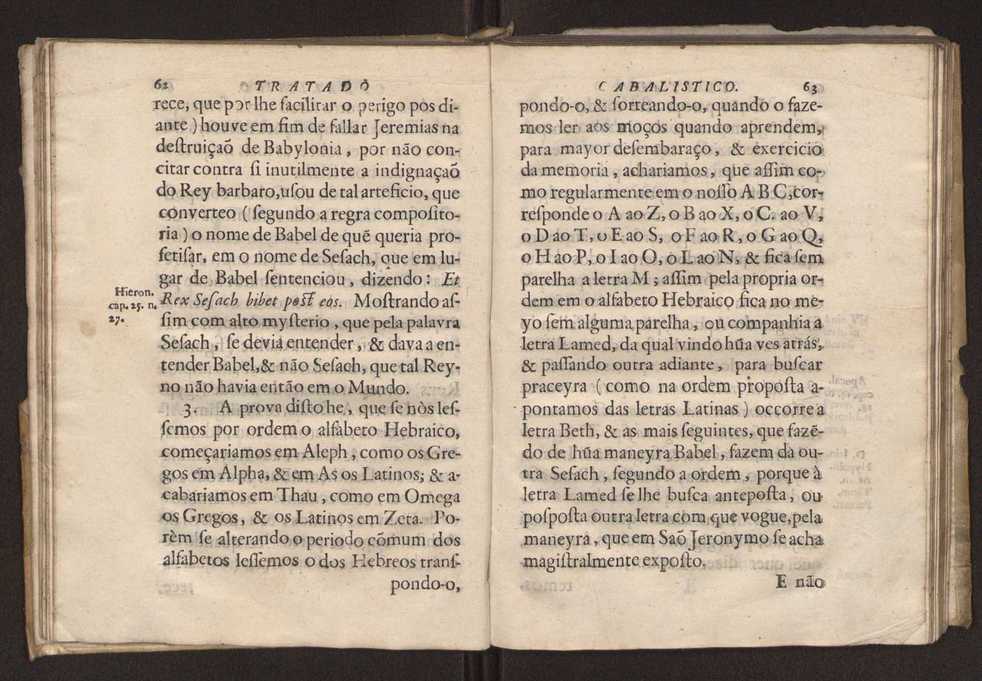 62 TRATADO
rece, que por lhe facilitar o perigo pos di-
ante ) houve em fim de fallar Jeremias na
destruiçaõ de Babylonia, por não con-
citar contra si inutilmente a indignaçaõ
do Rey barbaro, usou de tal arteficio, que
converteo ( segundo a regra composito-
ria ) o nome de Babel de quẽ queria pro-
fetisar, em o nome de Sesach, que em lu-
gar de Babel sentenciou, dizendo: Et
Rex Sesach bibet post eos. Mostrando as-
sim com alto mysterio, que pela palavra
Sesach, se devia entender, & dava a en-
tender Babel, & não Sesach, que tal Rey-
no não havia então em o Mundo.
3. A prova disto he, que se nòs les-
semos por ordem o alfabeto Hebraico,
começariamos em Aleph, como os Gre-
gos em Alpha, & em As os Latinos; & a-
cabariamos em Thau, como em Omega
os Gregos, & os Latinos em Zeta. Po-
rèm se alterando o periodo cõmum dos
alfabetos lessemos o dos Hebreos trans-
pondo-o,
Hieron.
cap. 25. n.
27.
CABALISTICO. 63
pondo-o, & sorteando-o, quando o faze-
mos ler aos moços quando aprendem,
para mayor desembaraço, & exercicio
da memoria, achariamos, que assim co-
mo regularmente em o nosso A B C, cor-
responde o A ao Z, o B ao X, o C. ao V,
o D ao T, o E ao S, o F ao R, o G ao Q,
o H ao P, o I ao O, o L ao N, & fica sem
parelha a letra M; assim pela propria or-
dem em o alfabeto Hebraico fica no me-
yo sem alguma parelha, ou companhia a
letra Lamed, da qual vindo hũa ves atrás,
& passando outra adiante, para buscar
praceyra ( como na ordem proposta a-
pontamos das letras Latinas ) occorre a
letra Beth, & as mais seguintes, que fazẽ-
do de hũa maneyra Babel, fazem da ou-
tra Sesach, segundo a ordem, porque à
letra Lamed se lhe busca anteposta, ou
posposta outra letra com que vogue, pela
maneyra, que em Saõ Jeronymo se acha
magistralmente exposto.
E não